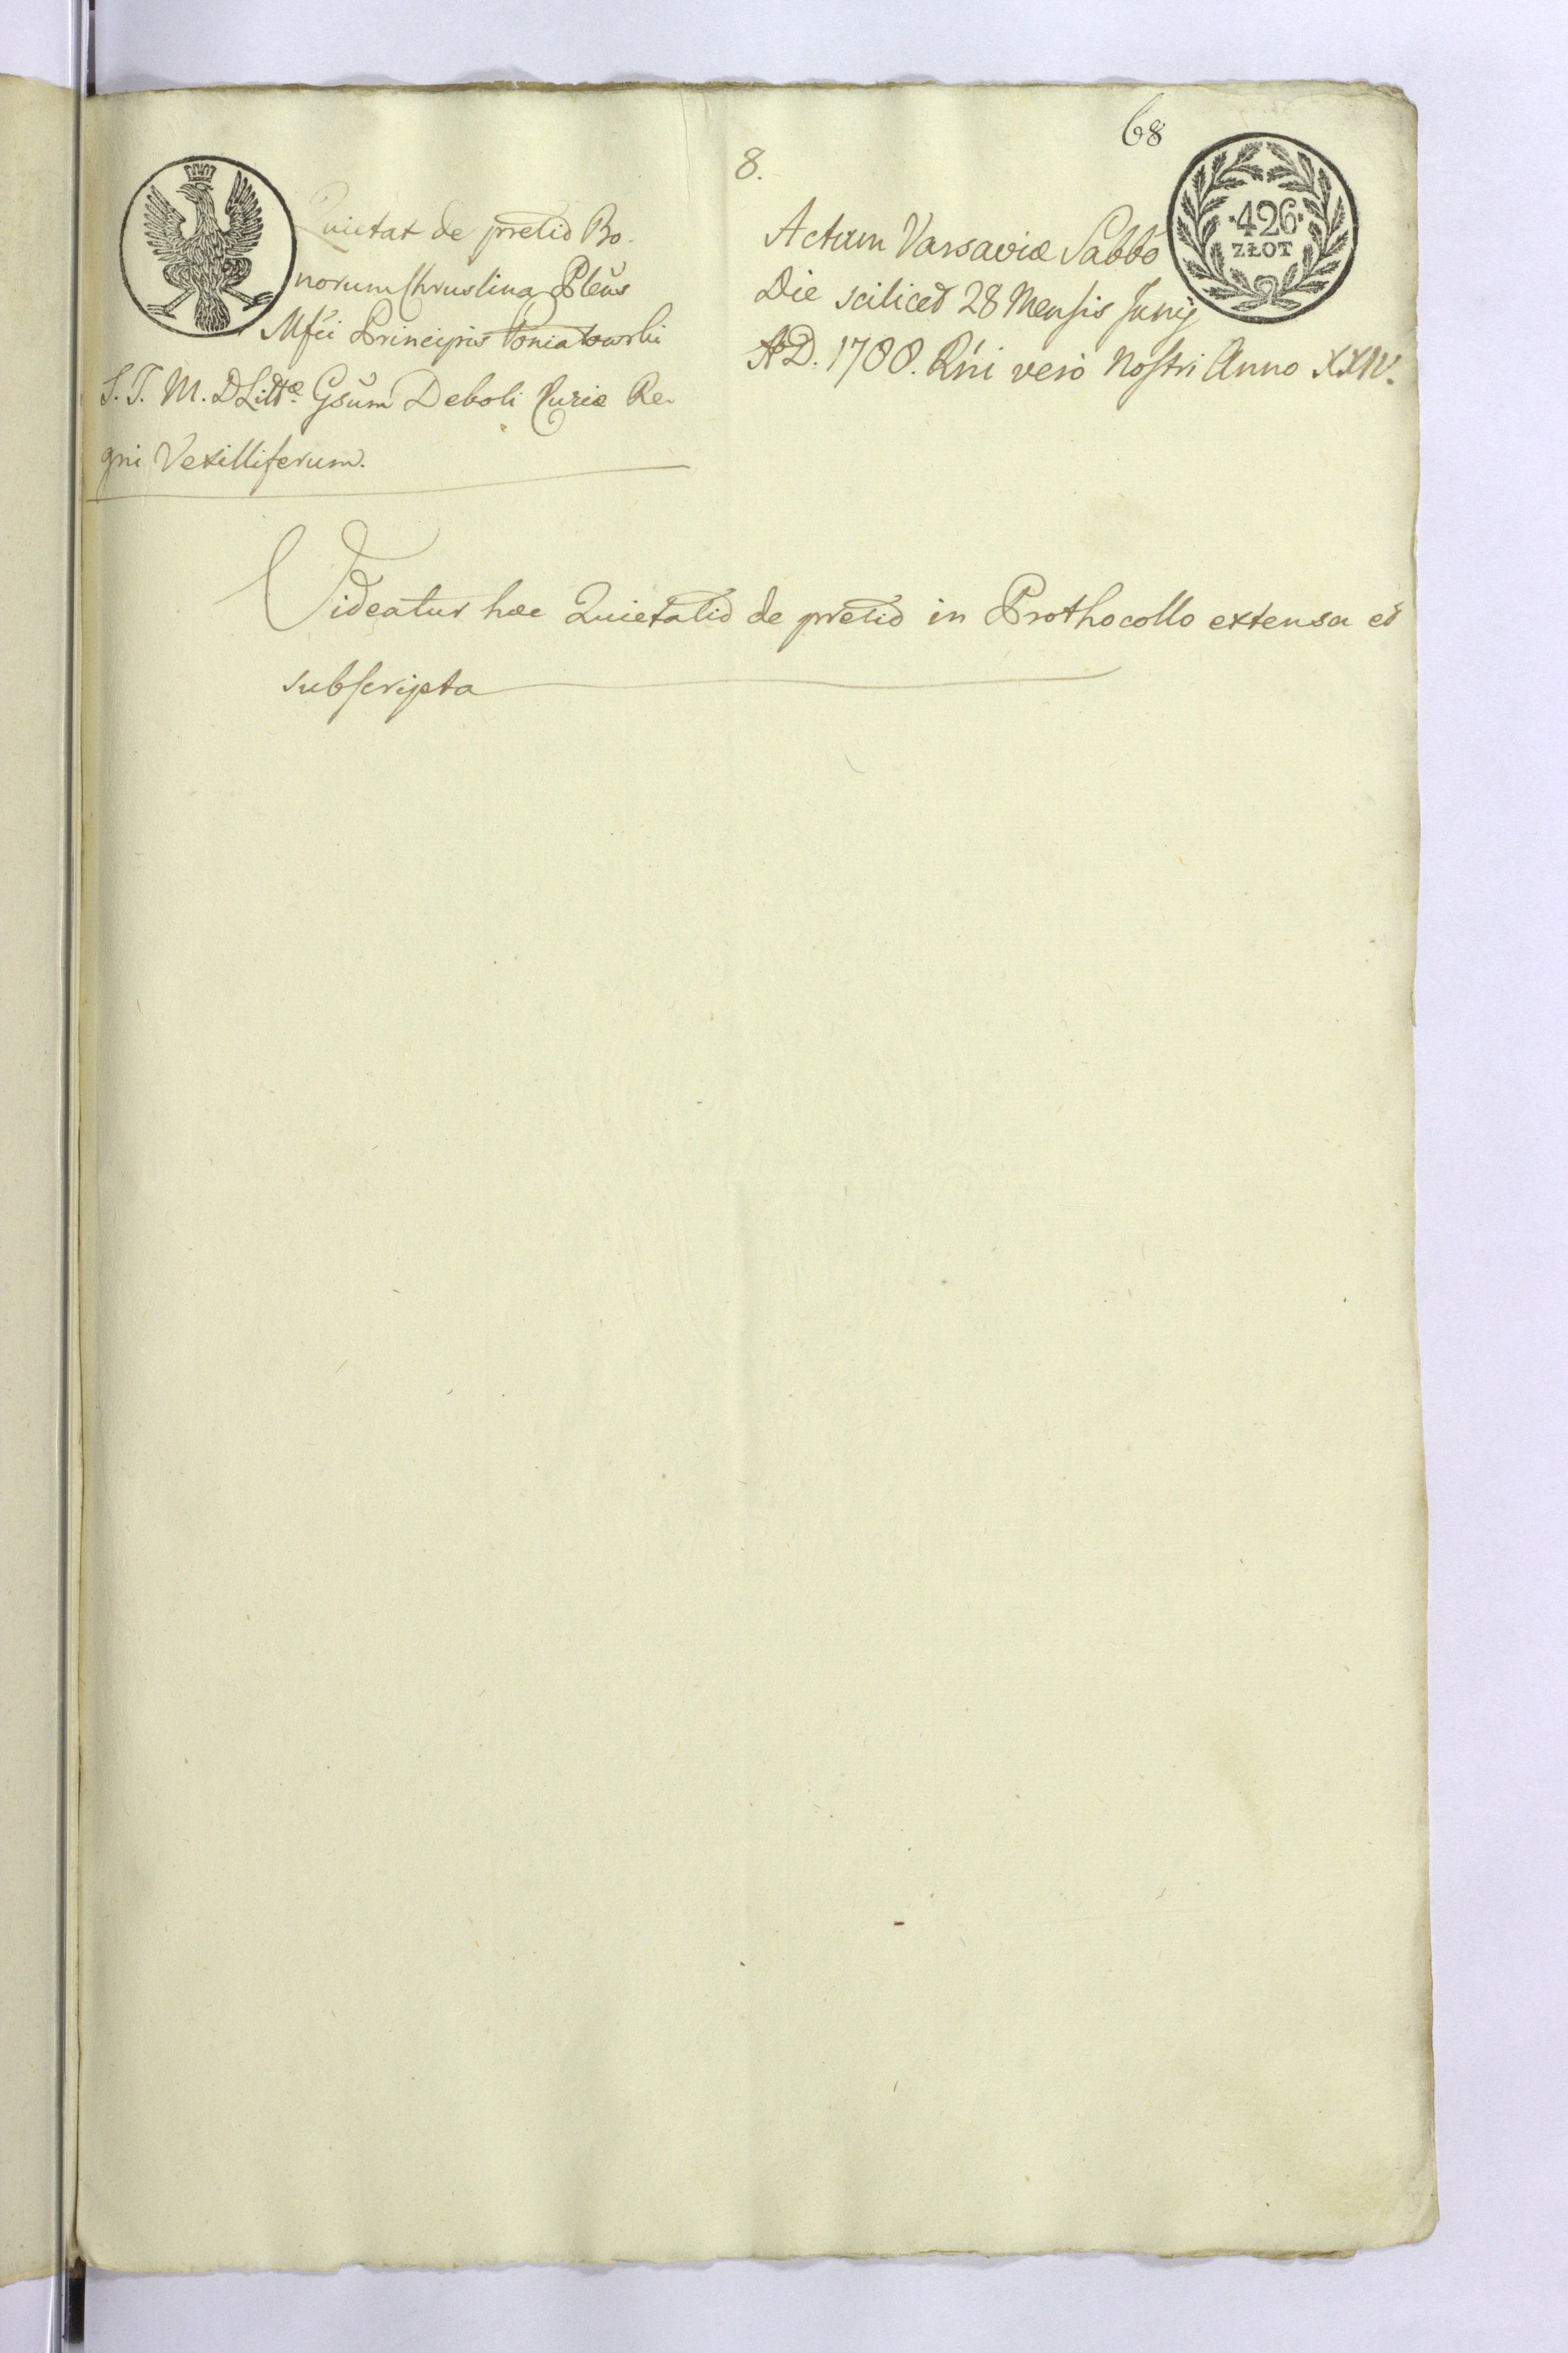 68
8.
Quietat de pretio Bo-
norum Chruslina Pleñs
Mfci Principis Poniatowski
S. T. M. D Littæ Gsum Deboli Curiæ Re-
gni Vexilliferum.
Actum Varsaviæ Sabbo
Die scilicet 28 Mensis Junij
AD. 1788. Rńi vero Nostri Anno XXIV.
426
ZŁOT
Videatur hæc Quietatio de pretio in Prothocollo extensa et
subscripta